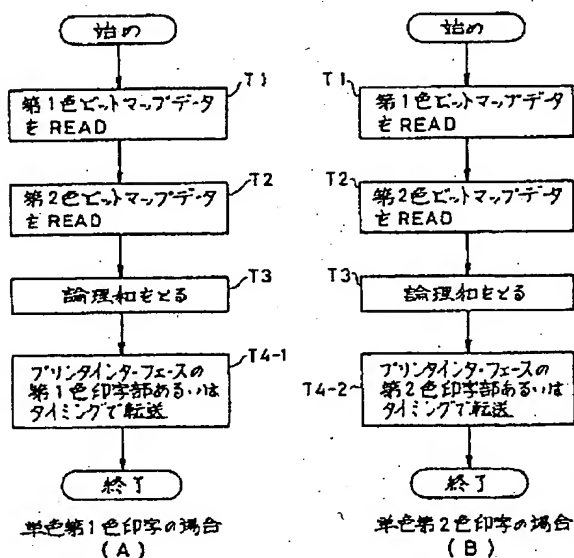 始め
T1
第1色ビットマップデータ
を READ
T2
第2色ビットマップデータ
を READ
T3
論理和をとる
T4-1
プリンタインターフェースの
第1色印字部あるいは
タイミングで転送
終了
単色第1色印字の場合
(A)
始め
T1
第1色ビットマップデータ
を READ
T2
第2色ビットマップデータ
を READ
T3
論理和をとる
T4-2
プリンタインターフェースの
第2色印字部あるいは
タイミングで転送
終了
単色第2色印字の場合
(B)